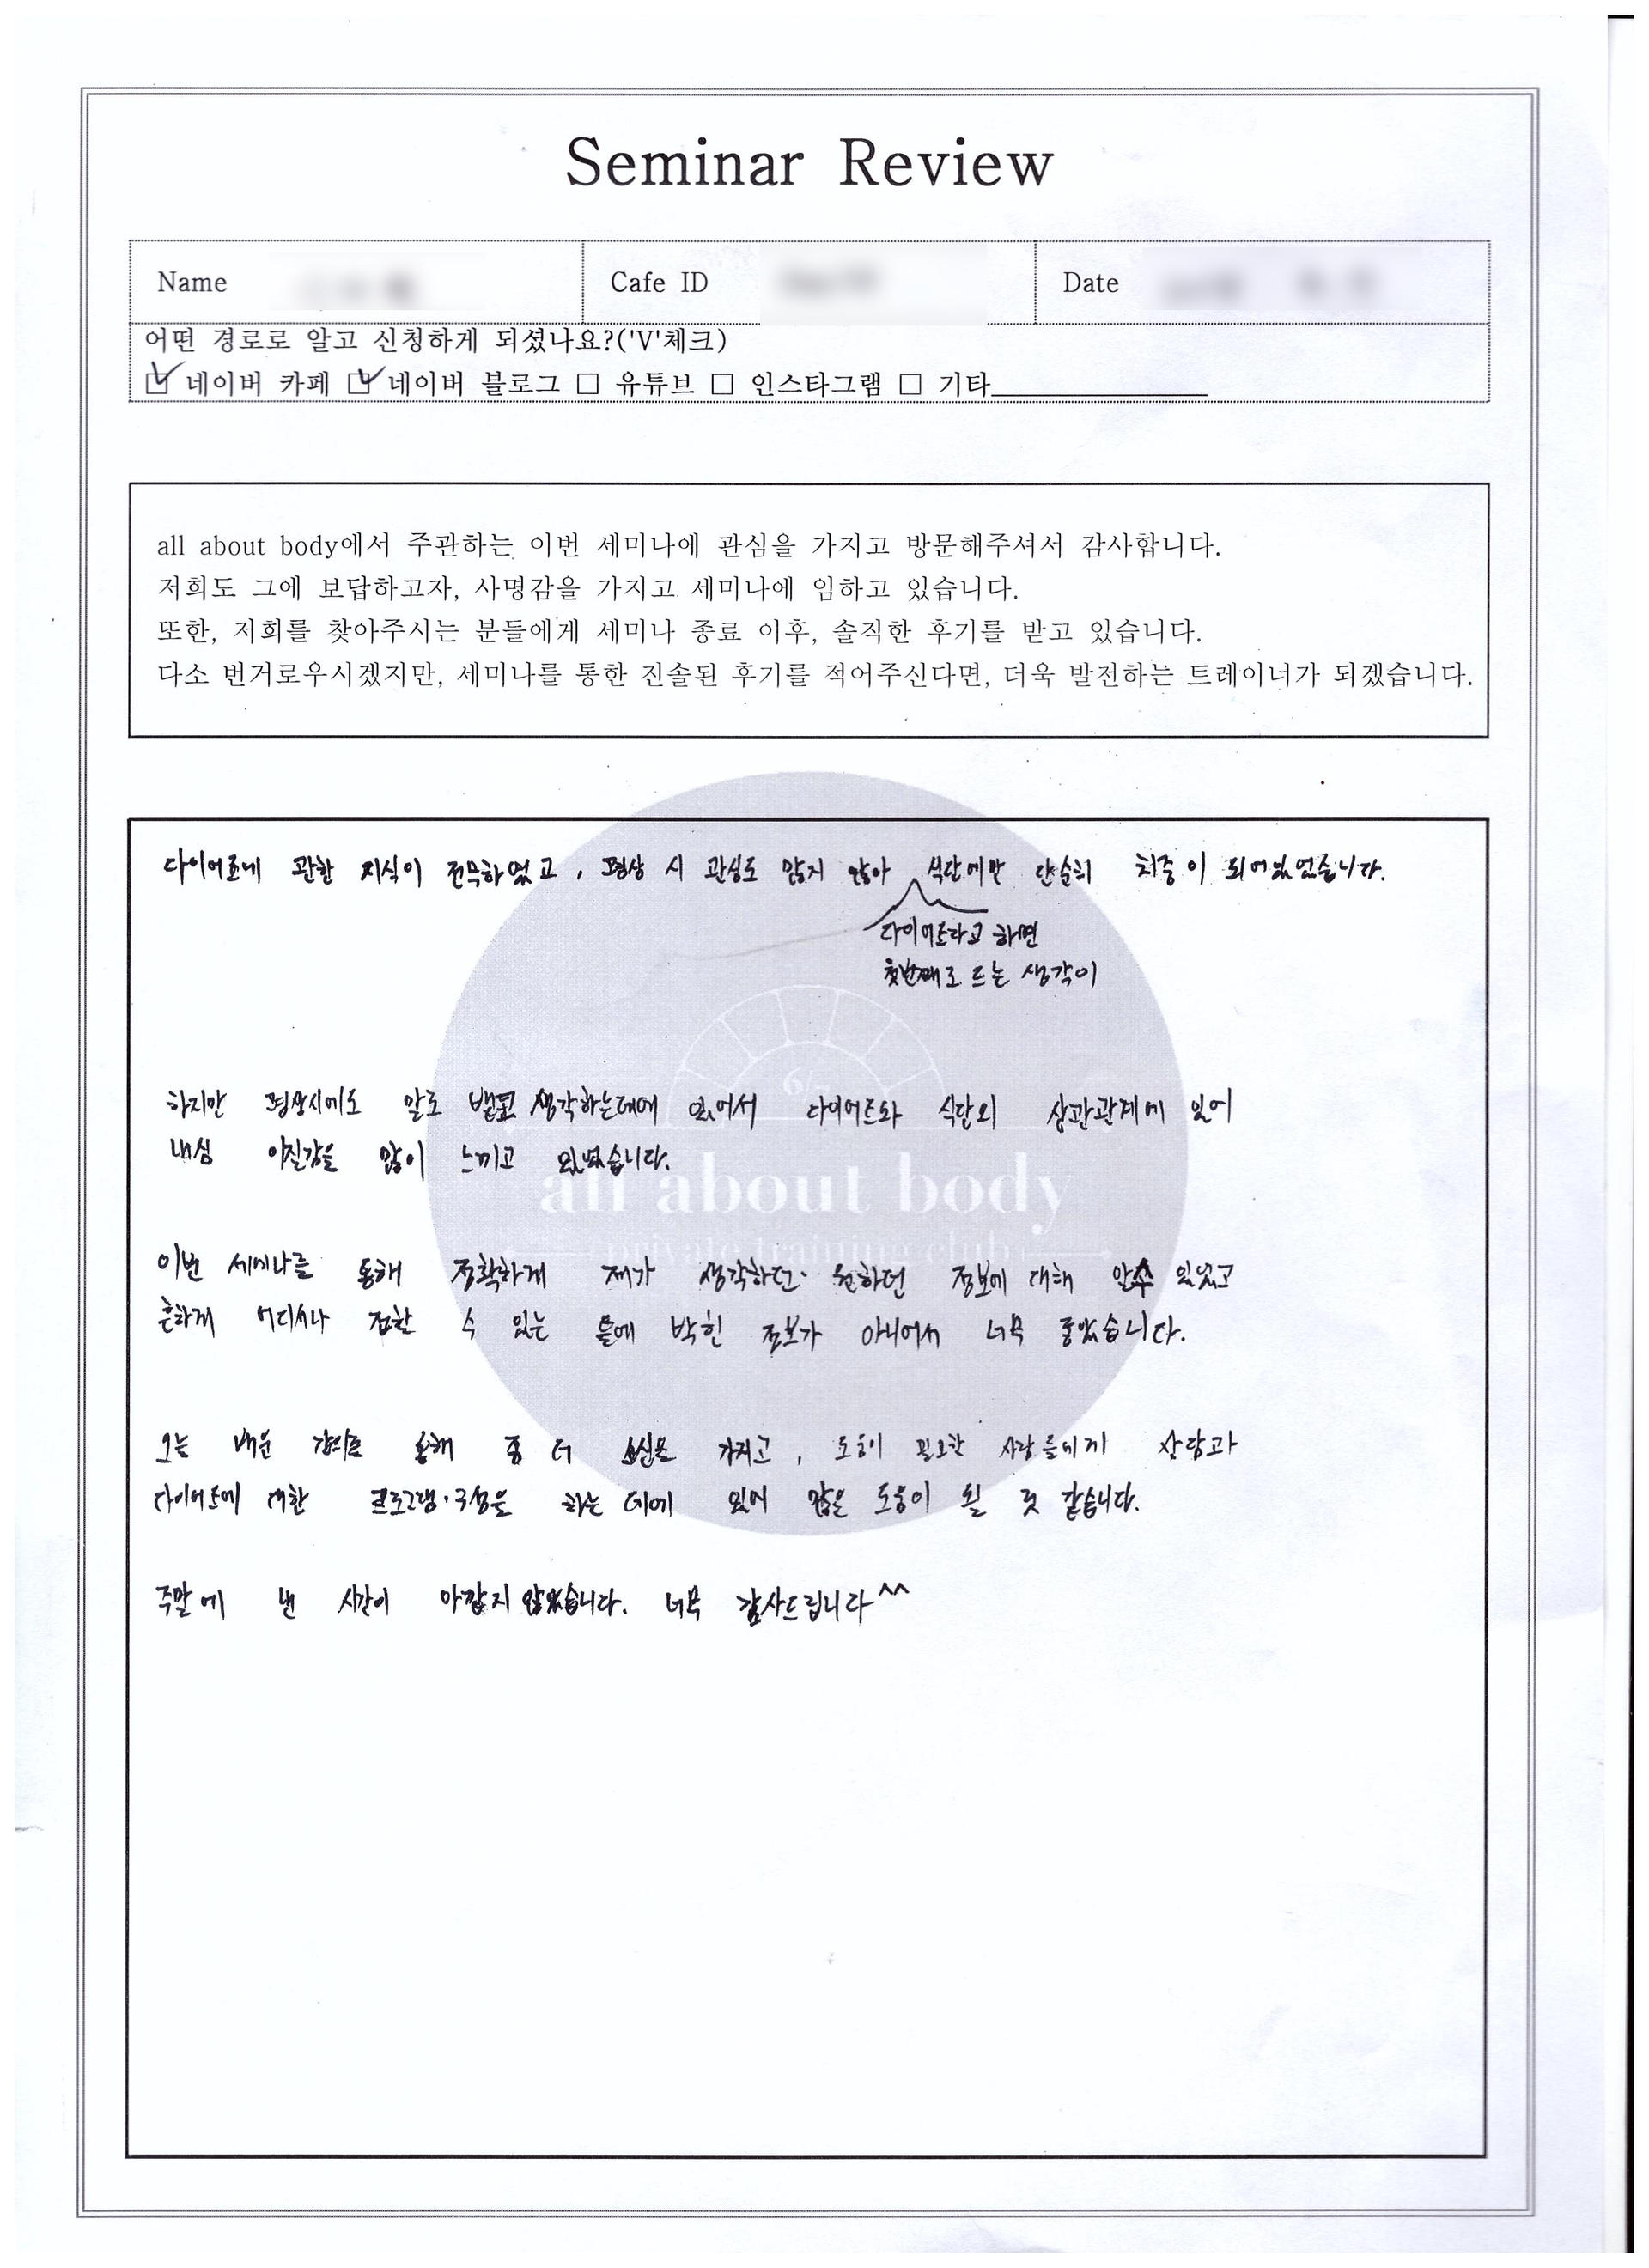 Seminar Review
Name
Cafe ID
Date
어떤 경로로 알고 신청하게 되셨나요?('V'체크)
☑ 네이버 카페 ☑ 네이버 블로그 □ 유튜브 □ 인스타그램 □ 기타
all about body에서 주관하는 이번 세미나에 관심을 가지고 방문해주셔서 감사합니다.
저희도 그에 보답하고자, 사명감을 가지고 세미나에 임하고 있습니다.
또한, 저희를 찾아주시는 분들에게 세미나 종료 이후, 솔직한 후기를 받고 있습니다.
다소 번거로우시겠지만, 세미나를 통한 진솔된 후기를 적어주신다면, 더욱 발전하는 트레이너가 되겠습니다.
다이어트에 관한 지식이 전무하였고, 평상 시 관심도 많지 않아 식단에만 단순히 치중이 되어있었습니다.
다이어트라고 하면
첫번째로 드는 생각이
하지만 평상시에도 말로 뱉고 생각하는데에 있어서 다이어트와 식단의 상관관계에 있어
내심 이질감을 많이 느끼고 있었습니다.
이번 세미나를 통해 정확하게 제가 생각하던·원하던 정보에 대해 알수 있었고
흔하게 어디서나 접할 수 있는 틀에 박힌 정보가 아니어서 너무 좋았습니다.
오늘 배운 강의를 통해 좀 더 가지고, 도움이 필요한 사람들에게 상담과
다이어트에 대한 프로그램·구성을 하는 데에 있어 많은 도움이 될 것 같습니다.
주말에 낸 시간이 아깝지 않았습니다. 너무 감사드립니다^^
all about body
private training club